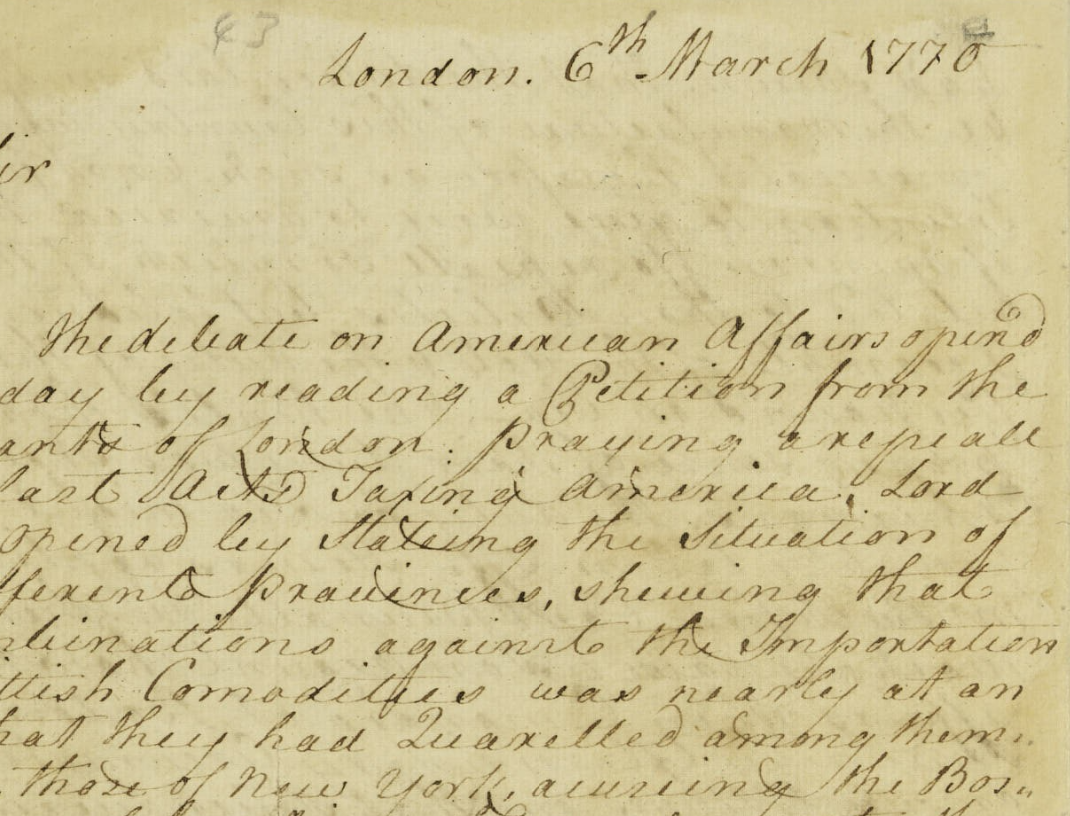 43
London. 6th March 1770
Sir
The debate on American Affairs opend
day by reading a Petition from the
ants of London. praying a repeall
last Acts Taxing America. Lord
opened by Stateing the Situation of
fferent Provinces, shewing that
binations against the Importation
ttish Comodities was nearly at an
hat they had Quarelled among them..
those of New York, acusing the Bos..